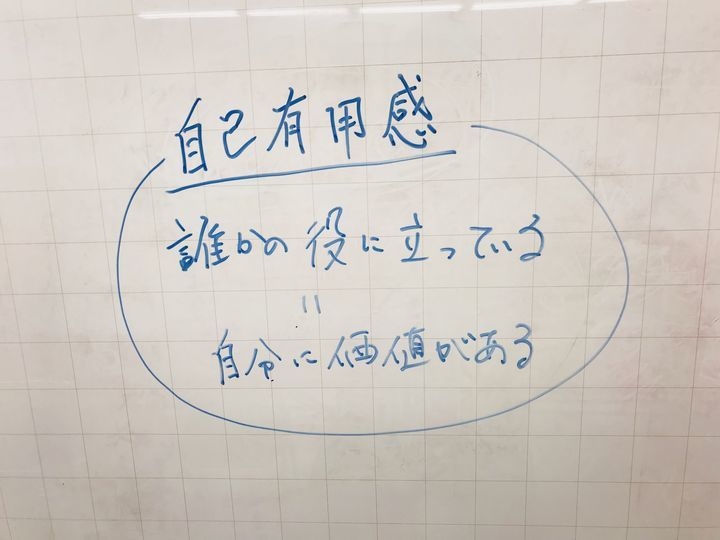 自己有用感
誰かの役に立っている
=
自分に価値がある